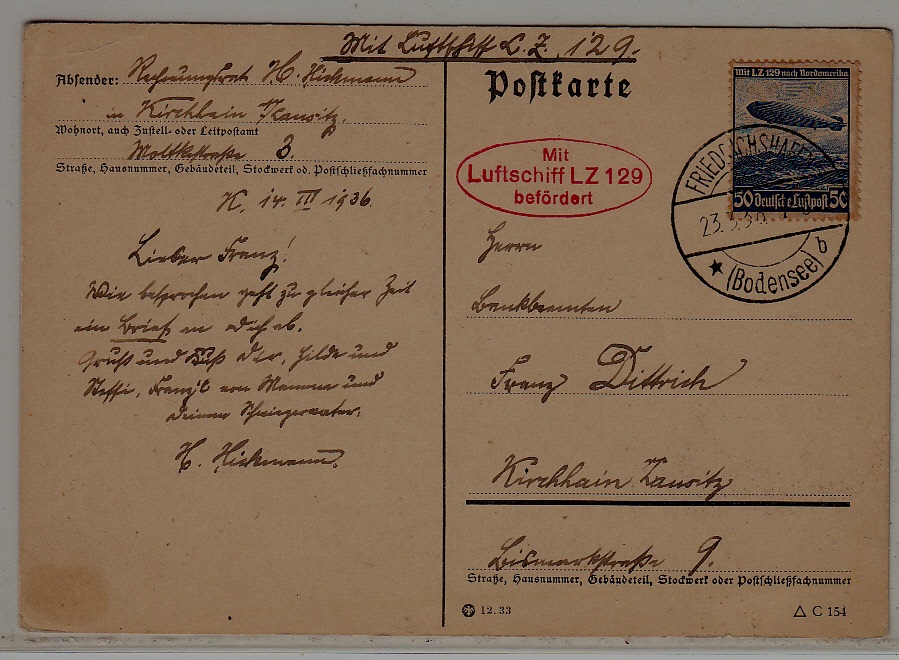 Mit Luftschiff L.Z. 129.
Absender: Rechnungsrat H. Hickmann
in Kirchhain N/Lausitz.
Wohnort, auch Zustell- oder Leitpostamt
Moltkestraße 3.
Straße, Hausnummer, Gebäudeteil, Stockwerk od. Postschließfachnummer
K. 14. III 1936
Lieber Franz!
Wie besprochen geht zu gleicher Zeit
ein Brief an Dich ab.
Gruß und Kuß Dir, Hilde und
Steffi, Franz'l von Mamma und
Deinem Schwiegervater.
H. Hickmann.
Postkarte
Mit
Luftschiff LZ 129
befördert
Mit LZ 129 nach Nordamerika
50 Deutsche Luftpost 50
FRIEDRICHSHAFEN
23.3.36.
(Bodensee) b
Herrn
Bankbeamten
Franz Dittrich
Kirchhain Lausitz
Bismarkstraße 9.
Straße, Hausnummer, Gebäudeteil, Stockwerk oder Postschließfachnummer
12. 33
C 154